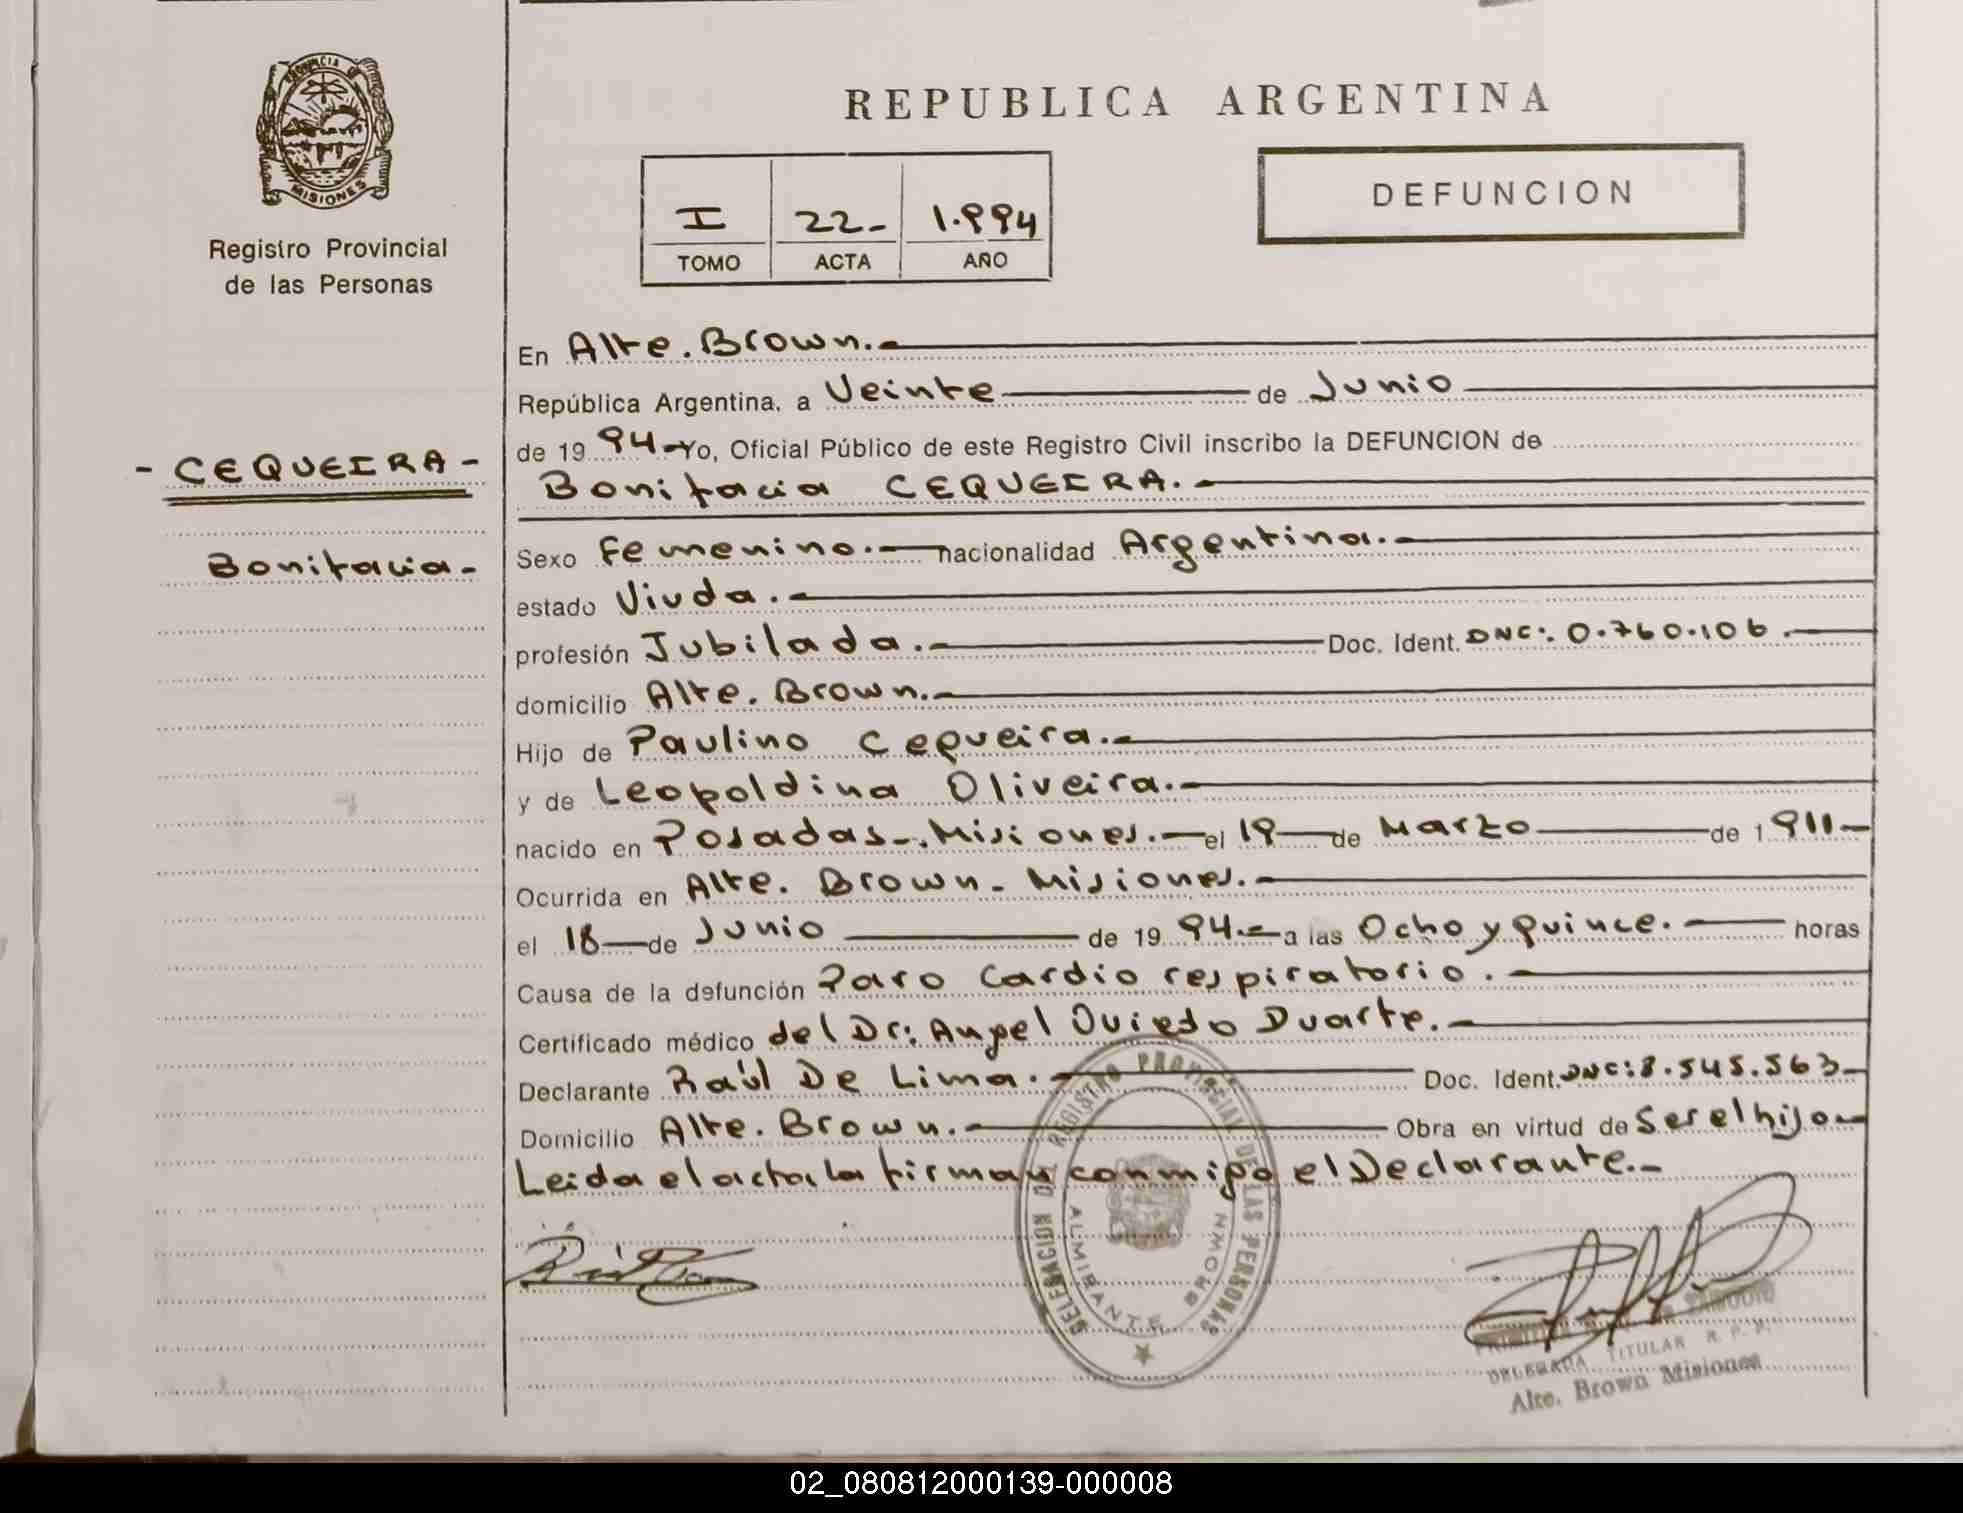 PROVINCIA DE
MISIONES
Registro Provincial
de las Personas
- CEQUEIRA -
Bonifacia-
REPUBLICA ARGENTINA
DEFUNCION
I 22- 1.994
TOMO ACTA AÑO
En Alte. Brown.-
República Argentina, a Veinte de Junio
de 19 94- Yo, Oficial Público de este Registro Civil inscribo la DEFUNCION de
Bonifacia CEQUEIRA.-
Sexo Femenino.- nacionalidad Argentina.-
estado Viuda.-
profesión Jubilada.- Doc. Ident. DNC: 0.760.106.-
domicilio Alte. Brown.-
Hijo de Paulino Cequeira.-
y de Leopoldina Oliveira.-
nacido en Posadas-. Misiones.- el 19 de Marzo de 1 911-
Ocurrida en Alte. Brown- Misiones.-
el 18 de Junio de 19 94.- a las Ocho y quince.- horas
Causa de la defunción Paro Cardio respiratorio.-
Certificado médico del Dr: Angel Oviedo Duarte.-
Declarante Raúl De Lima.- Doc. Ident. DNC: 8.545.563-
Domicilio Alte. Brown.- Obra en virtud de Ser el hijo-
Leida el acta la firman conmigo el Declarante.-
DELEGACION DEL REGISTRO PROVINCIAL DE LAS PERSONAS
ALMIRANTE BROWN
DELEGADA TITULAR R. P. P.
Alte. Brown Misiones
02_080812000139-000008